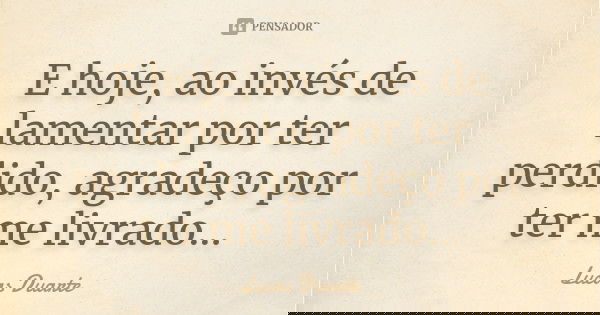 PENSADOR
E hoje, ao invés de
lamentar por ter
perdido, agradeço por
ter me livrado...
Lucas Duarte